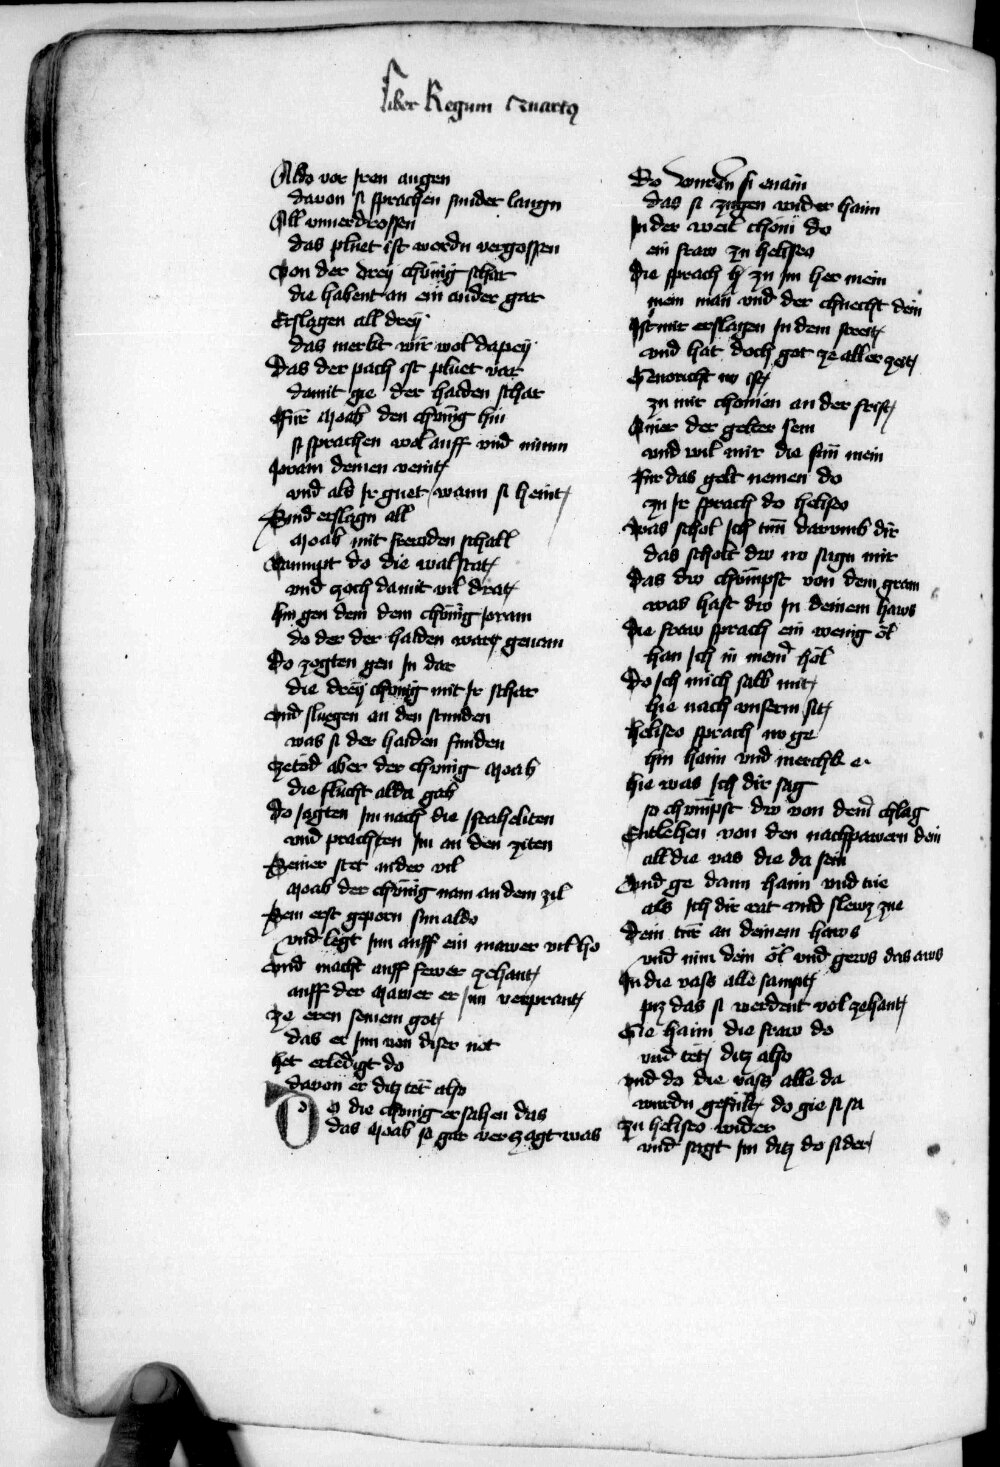 Liber Regum Quartus
Aldo vor jren augen
davon si sprachen sunder langn
All vnuerdrossen
das pluet ist wordn vergossen
Von der dreÿ chünig schar
die habent an ein ander gar
Erslagen all dreÿ
das merkt wir wol dapeÿ
Das der pach ist pluet var
damit gie der haiden schar
Für Moab den chünig hin
si sprachen wol auff vnd nimm
Joram deinen veint
vnd als jr guet wann si heint
Sind erslagn all
Moab mit frewden schall
Raumpt do die walstat
vnd zoch damit vil drat
hin gen dem dem chünig joram
do der der haiden wart genom
Do zogten gen jn dar
die dreÿ chünig mit jr schar
Vnd sluegen an den stunden
was si der haiden funden
Zetod aber der chünig Moab
die flucht alda gab
Do jagten jm nach die jsraheliten
vnd prachten jm an den ziten
Seiner stet ander vil
Moab der chünig nam an dem zil
Sein erst geporn sun aldo
vnd legt jnn auff ein mawer vil ho
Vnd macht auff fewer zehant
auff der Mawer er jnn verprant
Ze eren seinem got
das er jnn von diser not
het erledigt do
davon er ditz tet also
Do die chünig ersahen das
das Moab so gar verzagt was
Do wurden si enain
das si zugen wider haim
In der weil chom do
ein fraw zu heliseo
Die sprach zu jm her mein
mein man vnd der chnecht dein
Ist mir erslagen jn dem streit
vnd hat doch got ze aller zeit
Geuoricht nv ist
zu mir chomen an der frist
Ainer der gelter sein
vnd wil mir die sun mein
Für das gelt nemen do
zu jr sprach do heliseo
Was schol jch tun darvmb dir
das scholt dw nv sagn mir
Das dw chumpst von dem gram
was hast dw jn deinem haws
Die fraw sprach ein wenig öl
han jch in meinem höl
Do jch mich salb mit
hie nach vnserm sit
heliseo sprach nv ge
hin haim vnd merchk e
hie was jch dir sag
so chumpst dw von dem chlag
Entlehen von den nachpawern dein
all die vas die da sein
Vnd ge dann haim vnd tue
als jch dir rat vnd slewz zue
Dein tür an deinem haws
vnd nim dein öl vnd gews das aws
In die vass alle sampt
piz das si werdent vol zehant
Gie haim die fraw do
vnd tet ditz also
Vnd do die vass alle da
wurdn gefült do gie si sa
Zu heliseo wider
vnd sagt jm ditz do sider